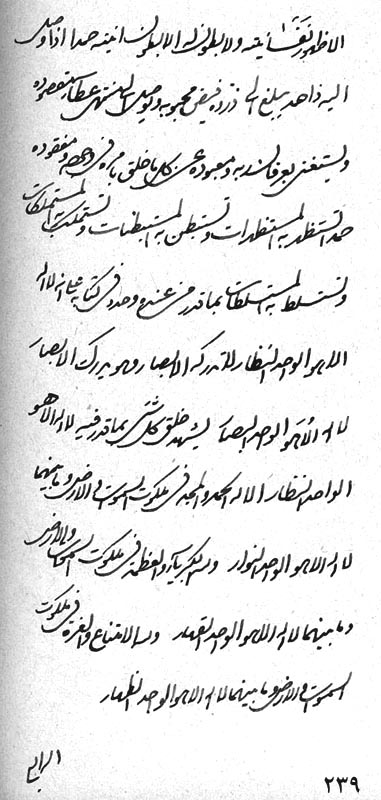 الا ظهور نفسانيته ولا بطون له الا بطون انيته حمدا اذا وصل
اليه ذا حد يبلغ الى ذروة فيض محبوبه ويوصل الى منتهى عطاء مقصوده
ويستغنى بعرفانه ومعبوده عن كل ما خلق
حمدا تستظهر به المستظهرات وتستبطن به المستبطنات وتستملك به المستملكات
وتستسلط به المستسلطات بما قدر من عنده وحده فى كتابه على انه لا اله
الا هو الواحد النظار لا تدركه الابصار وهو يدرك الابصار
لا اله الا هو الواحد البصار ليشهد خلق كل شئ بما قدر فيه لا اله الا هو
الواحد النظار الا له الحمد والمجد فى ملكوت السموات والارض وما بينهما
لا اله الا هو الواحد النوار وله الكبرياء والعظمة فى ملكوت السموات والارض
وما بينهما لا اله الا هو الواحد القهار وله الامتناع والعزة فى ملكوت
السموات والارض وما بينهما لا اله الا هو الواحد الظهار
٢٣٩